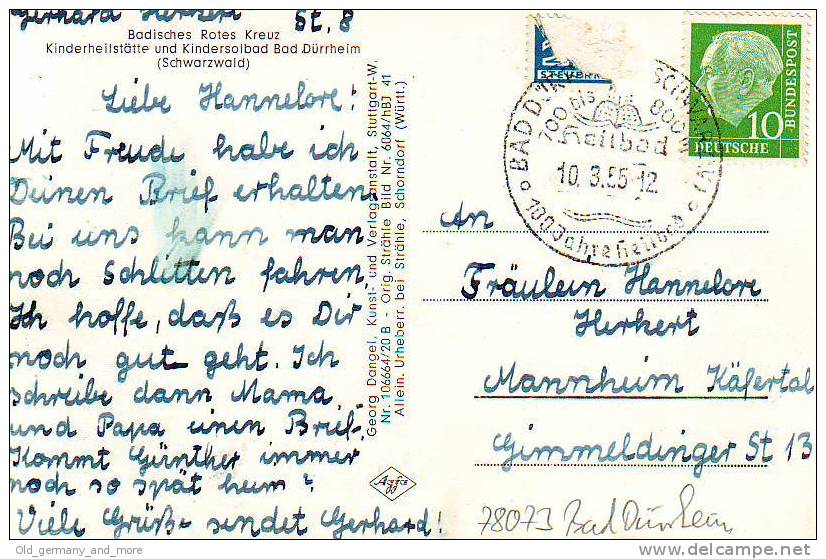 Gerhard Herkert St. 8
Badisches Rotes Kreuz
Kinderheilstätte und Kindersolbad Bad Dürrheim
(Schwarzwald)
Liebe Hannelore!
Mit Freude habe ich
Deinen Brief erhalten
Bei uns kann man
noch Schlitten fahren.
Ich hoffe, daß es Dir
noch gut geht. Ich
schreibe dann Mama
und Papa einen Brief.
Kommt Günther immer
noch so spät heim?
Viele Grüße sendet Gerhard!
Georg Dangel, Kunst- und Verlagsanstalt, Stuttgart-W.
Nr. 106664/20 B - Orig. Strähle Bild Nr. 6064/hBJ 41
Allein. Urheberr. bei Strähle, Schorndorf (Württ.)
Agfa
STEUER
10
DEUTSCHE
BUNDESPOST
BAD DÜRRHEIM SCHWARZW
700 bis 800 m
Heilbad
10.3.55-12
100 Jahre Heilbad
An
Fräulein Hannelore
Herkert
Mannheim Käfertal
Gimmeldinger St 13
78073 Bad Dürrheim
Old_germany_and_more
delcampe.net